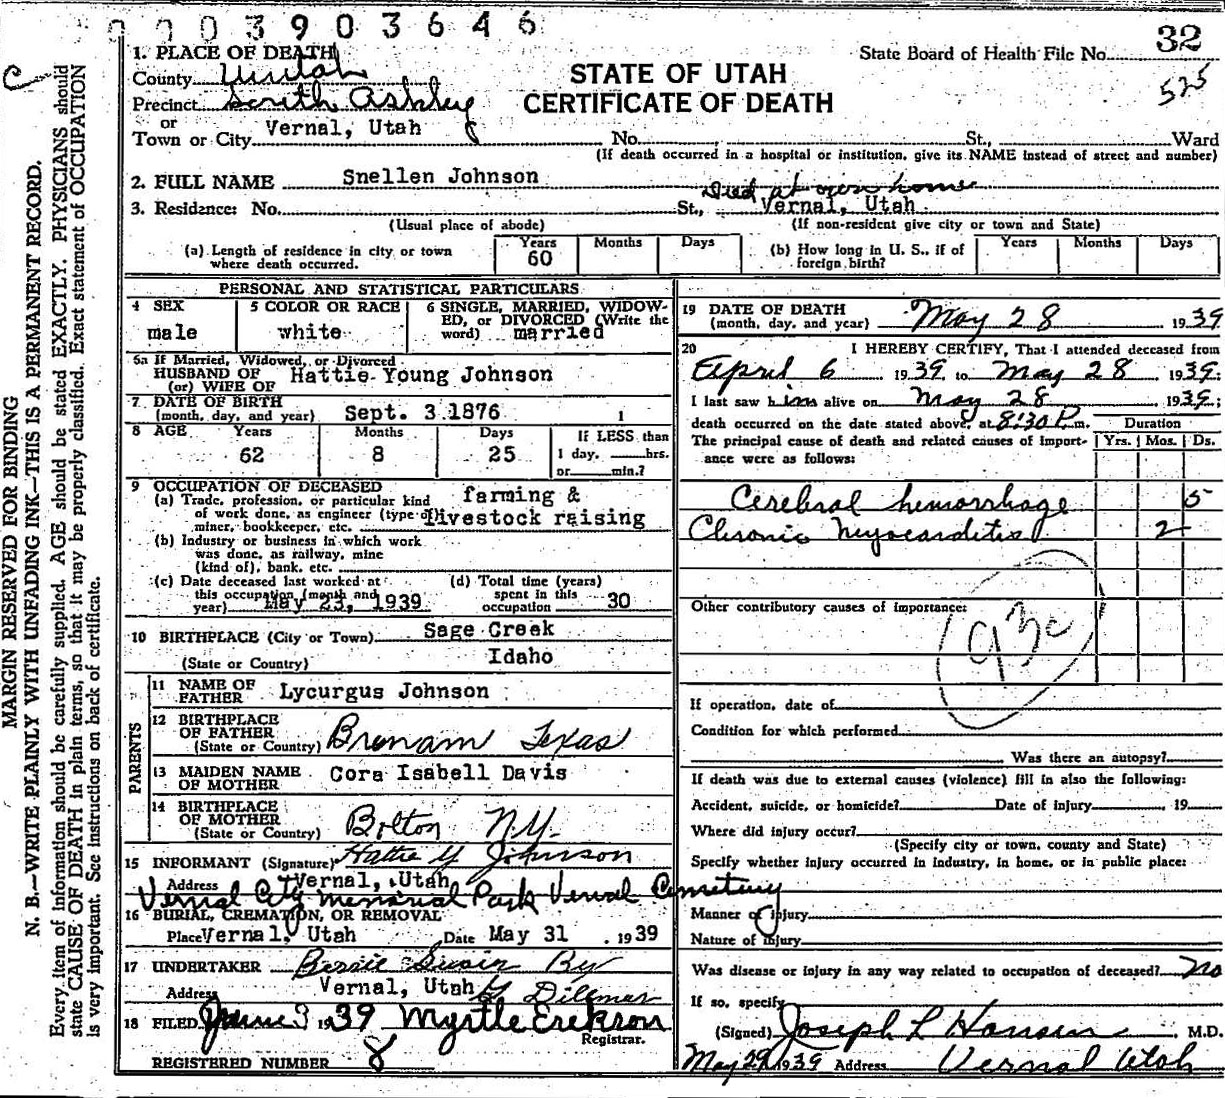 0003903646
32
State Board of Health File No.
525
STATE OF UTAH
CERTIFICATE OF DEATH
1. PLACE OF DEATH
County Uintah
Precinct South Ashley
or
Town or City Vernal, Utah No. St., Ward
(If death occurred in a hospital or institution, give its NAME instead of street and number)
2. FULL NAME Snellen Johnson
Died at own home
3. Residence: No. St., Vernal, Utah
(Usual place of abode) (If non-resident give city or town and State)
(a) Length of residence in city or town where death occurred. Years 60 Months Days (b) How long in U. S., if of foreign birth? Years Months Days
PERSONAL AND STATISTICAL PARTICULARS
4 SEX male
5 COLOR OR RACE white
6 SINGLE, MARRIED, WIDOWED, or DIVORCED (Write the word) married
5a If Married, Widowed, or Divorced
HUSBAND OF Hattie Young Johnson
(or) WIFE OF
7 DATE OF BIRTH
(month, day, and year) Sept. 3 1876 1
8 AGE Years 62 Months 8 Days 25 If LESS than 1 day, hrs. or min.?
9 OCCUPATION OF DECEASED
(a) Trade, profession, or particular kind of work done, as engineer (type of) miner, bookkeeper, etc. farming & livestock raising
(b) Industry or business in which work was done, as railway, mine (kind of), bank, etc.
(c) Date deceased last worked at this occupation (month and year) May 23, 1939
(d) Total time (years) spent in this occupation 30
10 BIRTHPLACE (City or Town) Sage Creek
(State or Country) Idaho
PARENTS
11 NAME OF FATHER Lycurgus Johnson
12 BIRTHPLACE OF FATHER (State or Country) Brenam Texas
13 MAIDEN NAME OF MOTHER Cora Isabell Davis
14 BIRTHPLACE OF MOTHER (State or Country) Bolton N.Y.
15 INFORMANT (Signature) Hattie Y Johnson
Address Vernal, Utah
Vernal City Memorial Park Vernal Cemetery
16 BURIAL, CREMATION, OR REMOVAL
Place Vernal, Utah Date May 31, 1939
17 UNDERTAKER Bessie Swain By
Address Vernal, Utah G Dillman
18 FILED June 3 1939 Myrtle Erekson
Registrar.
REGISTERED NUMBER 8
19 DATE OF DEATH
(month, day, and year) May 28 1939
20 I HEREBY CERTIFY, That I attended deceased from
April 6 1939 to May 28 1939;
I last saw him alive on May 28 1939;
death occurred on the date stated above, at 8:30 P. m.
Duration
Yrs. Mos. Ds.
The principal cause of death and related causes of importance were as follows:
Cerebral hemorrhage 5
Chronic Myocarditis 2
Other contributory causes of importance:
93c
If operation, date of
Condition for which performed
Was there an autopsy?
If death was due to external causes (violence) fill in also the following:
Accident, suicide, or homicide? Date of injury , 19
Where did injury occur?
(Specify city or town, county and State)
Specify whether injury occurred in industry, in home, or in public place:
Manner of injury
Nature of injury
Was disease or injury in any way related to occupation of deceased? No
If so, specify
(Signed) Joseph L Hansen M.D.
May 29 1939 Address Vernal Utah
MARGIN RESERVED FOR BINDING
N. B.—WRITE PLAINLY WITH UNFADING INK—THIS IS A PERMANENT RECORD.
Every item of information should be carefully supplied. AGE should be stated EXACTLY. PHYSICIANS should
state CAUSE OF DEATH in plain terms, so that it may be properly classified. Exact statement of OCCUPATION
is very important. See instructions on back of certificate.